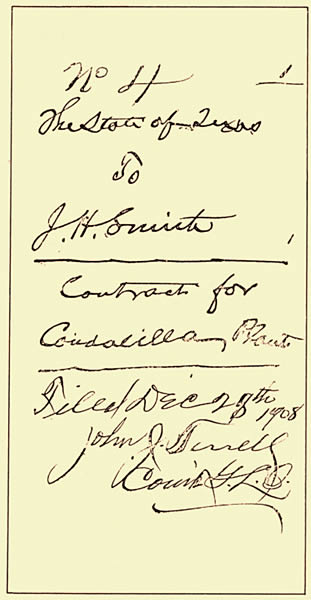 No 4
The State of Texas
To
J. H. Smith
Contract for
Candalilla Plant
Filed Dec 28th 1908
John J. Terrell
Com G. L. O.